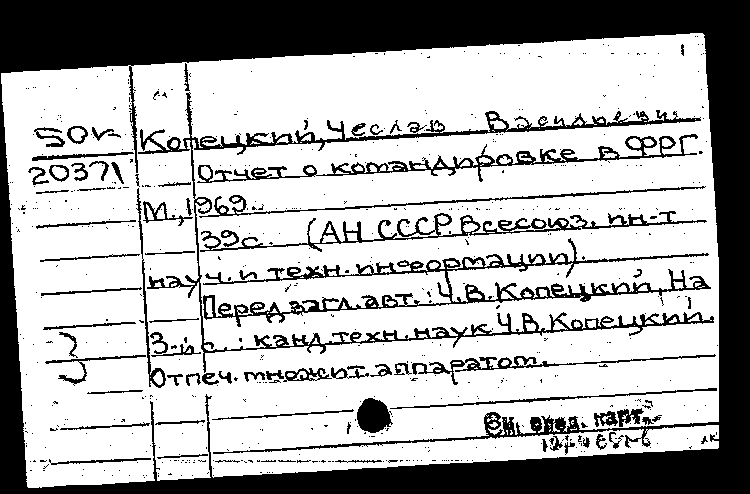 50к Копецкий, Чеслав Васильевич
20371 Отчет о командировке в ФРГ.
М., 1969.
39с. (АН СССР. Всесоюз. ин-т
науч. и техн. информации).
Перед загл. авт.: Ч.В. Копецкий, На
3-й с.: канд. техн. наук Ч.В. Копецкий.
Отпеч. множит. аппаратом.
карт.